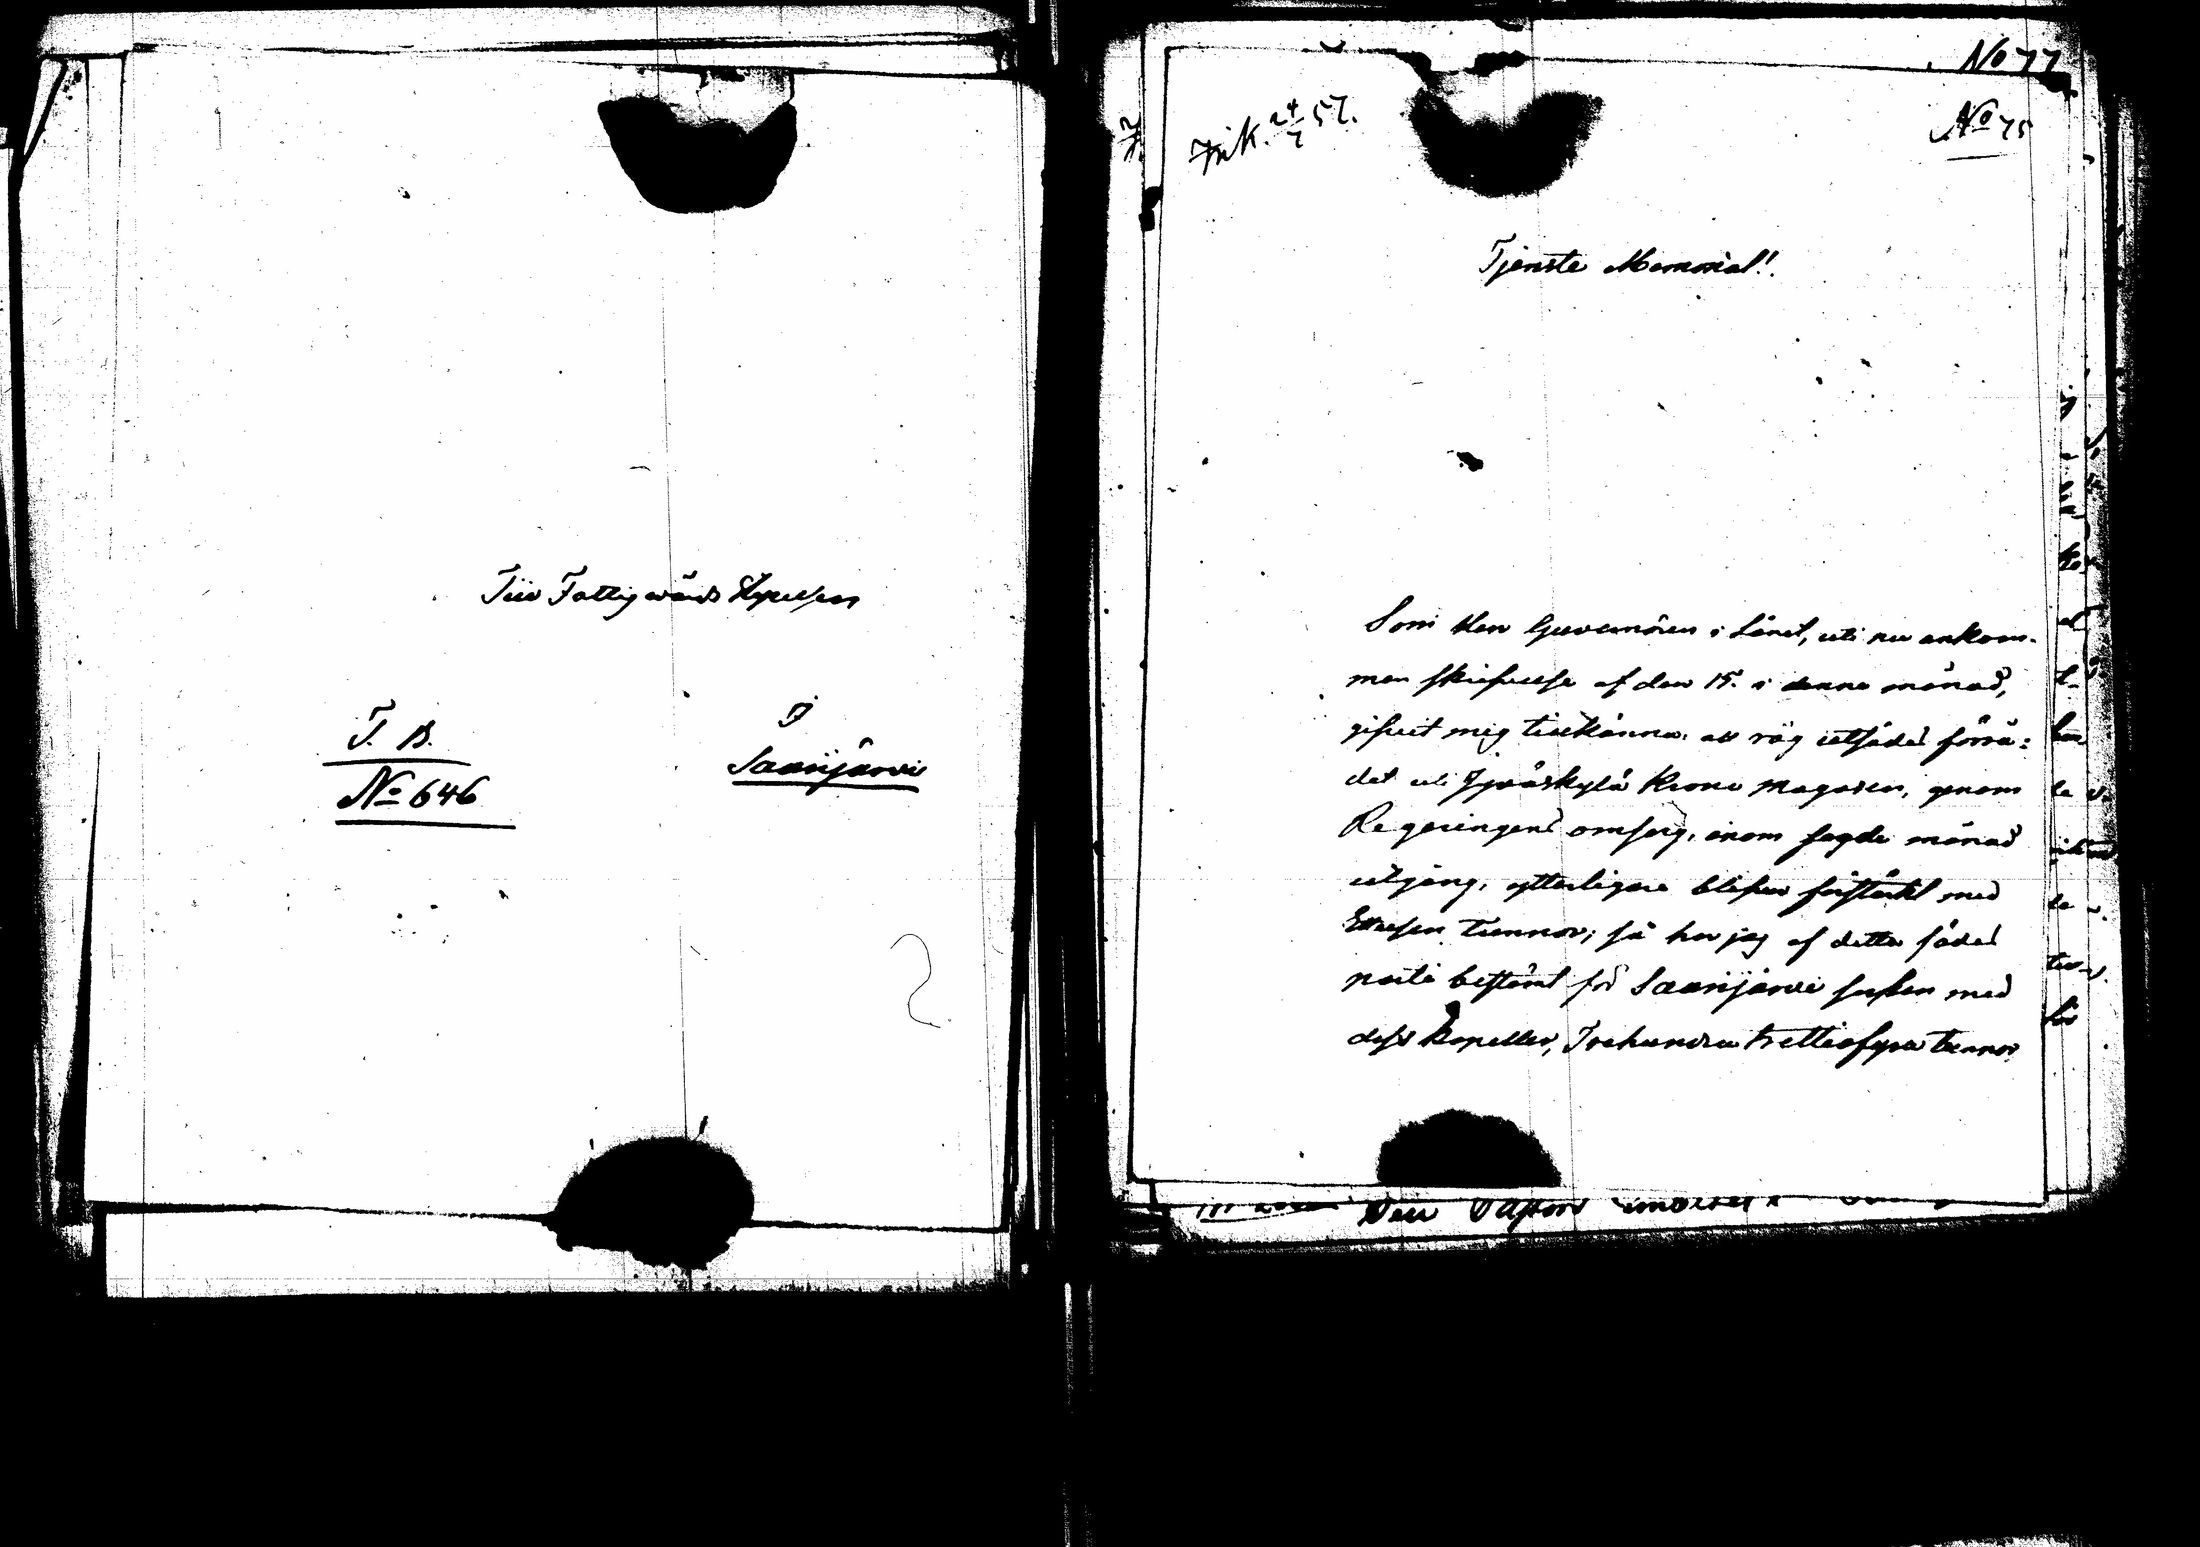 Till Fattigvårds Styrelsen
I
T. B.
Saarijärvi
No 646
No 77
Ink. 24/7 57.
No 75
Tjenste Memorial!
Som Herr Guvernören i Länet, uti nu ankom-
men skrifvelse af den 15. i denna månad,
gifvit mig tillkänna, att råg utsädes förrå=
det uti Jyväskylä Krono Magasin, genom
Regeringens omsorg, inom sagde månads
utgång, ytterligare blifver förstärkt med
tunnor; så har jag af detta sädes
parti bestämt för Saarijärvi socken med
dess Kapeller, Trehundra trettiofyra tunnor